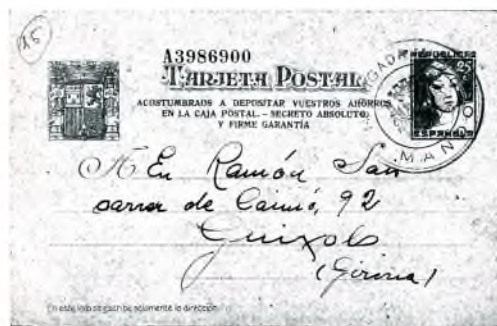 15
A3986900
TARJETA POSTAL
ACOSTUMBRAOS A DEPOSITAR VUESTROS AHORROS
EN LA CAJA POSTAL.-SECRETO ABSOLUTO
Y FIRME GARANTÍA
REPÚBLICA
25
ESPAÑOLA
MANDO
A En Ramón San
carrer de Caimó, 92
Guixols
(Girona)
En este lado se escribe solamente la dirección